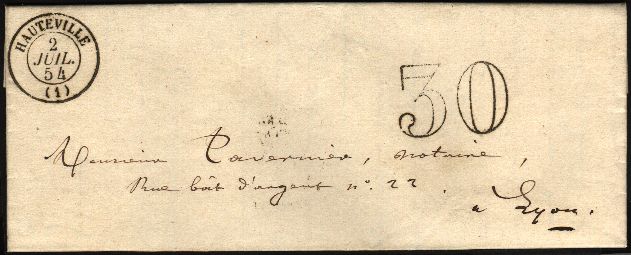 HAUTEVILLE
2
JUIL.
54
(1)
30
Monsieur Tavernier, notaire,
Rue bât d'argent n°. 22
a Lyon.